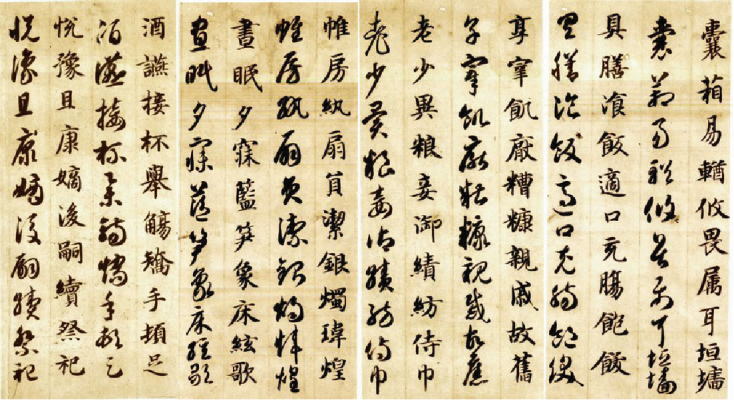 囊箱易輶攸畏属耳垣墻
囊箱易輶攸畏属耳垣墻
具膳飡飯適口充腸飽飫
具膳飡飯適口充腸飽飫
享宰飢厭糟糠親戚故舊
享宰飢厭糟糠親戚故舊
老少異粮妾御績紡侍巾
老少異粮妾御績紡侍巾
帷房紈扇員潔銀燭瑋煌
帷房紈扇員潔銀燭煒煌
晝眠夕寐藍笋象床絃歌
晝眠夕寐藍笋象床絃歌
酒讌接杯舉觴矯手頓足
酒讌接杯舉觴矯手頓足
悦豫且康嫡後嗣續祭祀
悦豫且康嫡後嗣續祭祀